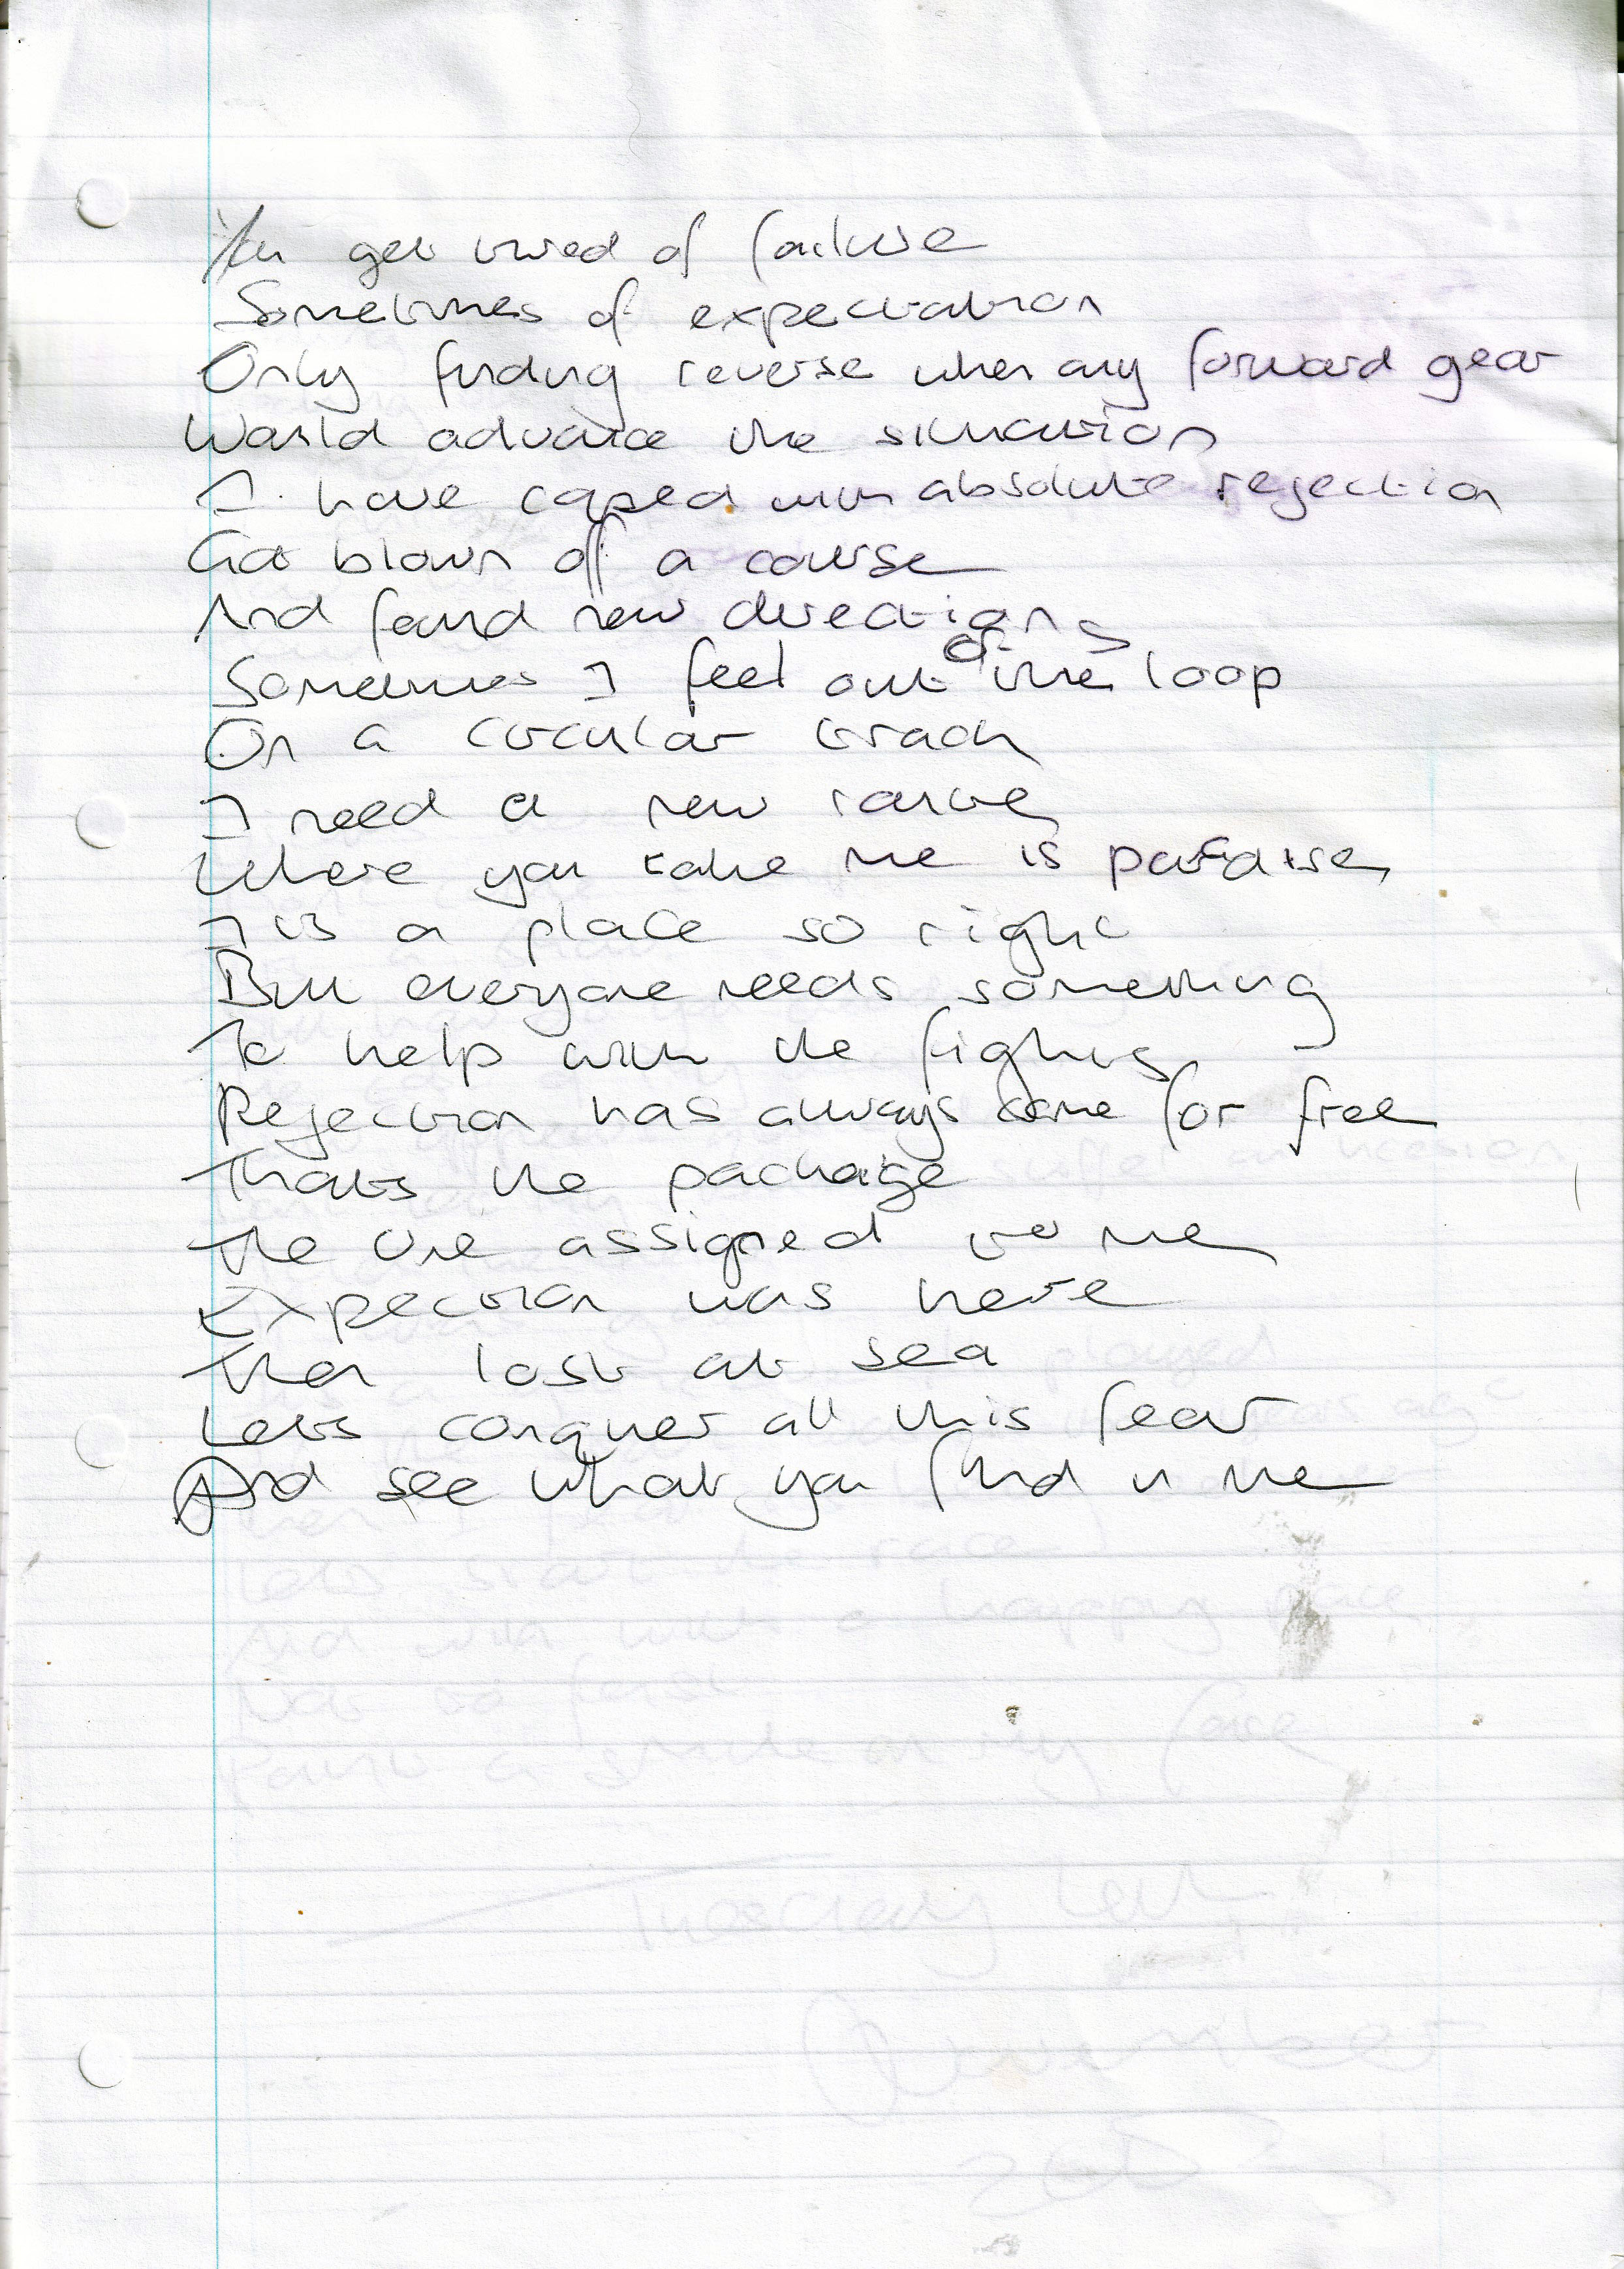 You get tired of failure
Sometimes of expectation
Only finding reverse when any forward gear
Would advance the situation
I have coped with absolute rejection
Got blown off a course
And found new directions
Sometimes I feel out of the loop
On a circular track
I need a new
Where you take me is paradise
Tis a place so right
But everyone needs something
To help with the fights
Rejection has always come for free
Thats the package
The One assigned to me
Expection was here
Then lost at sea
Lets conquer all this fear
And see what you find in me